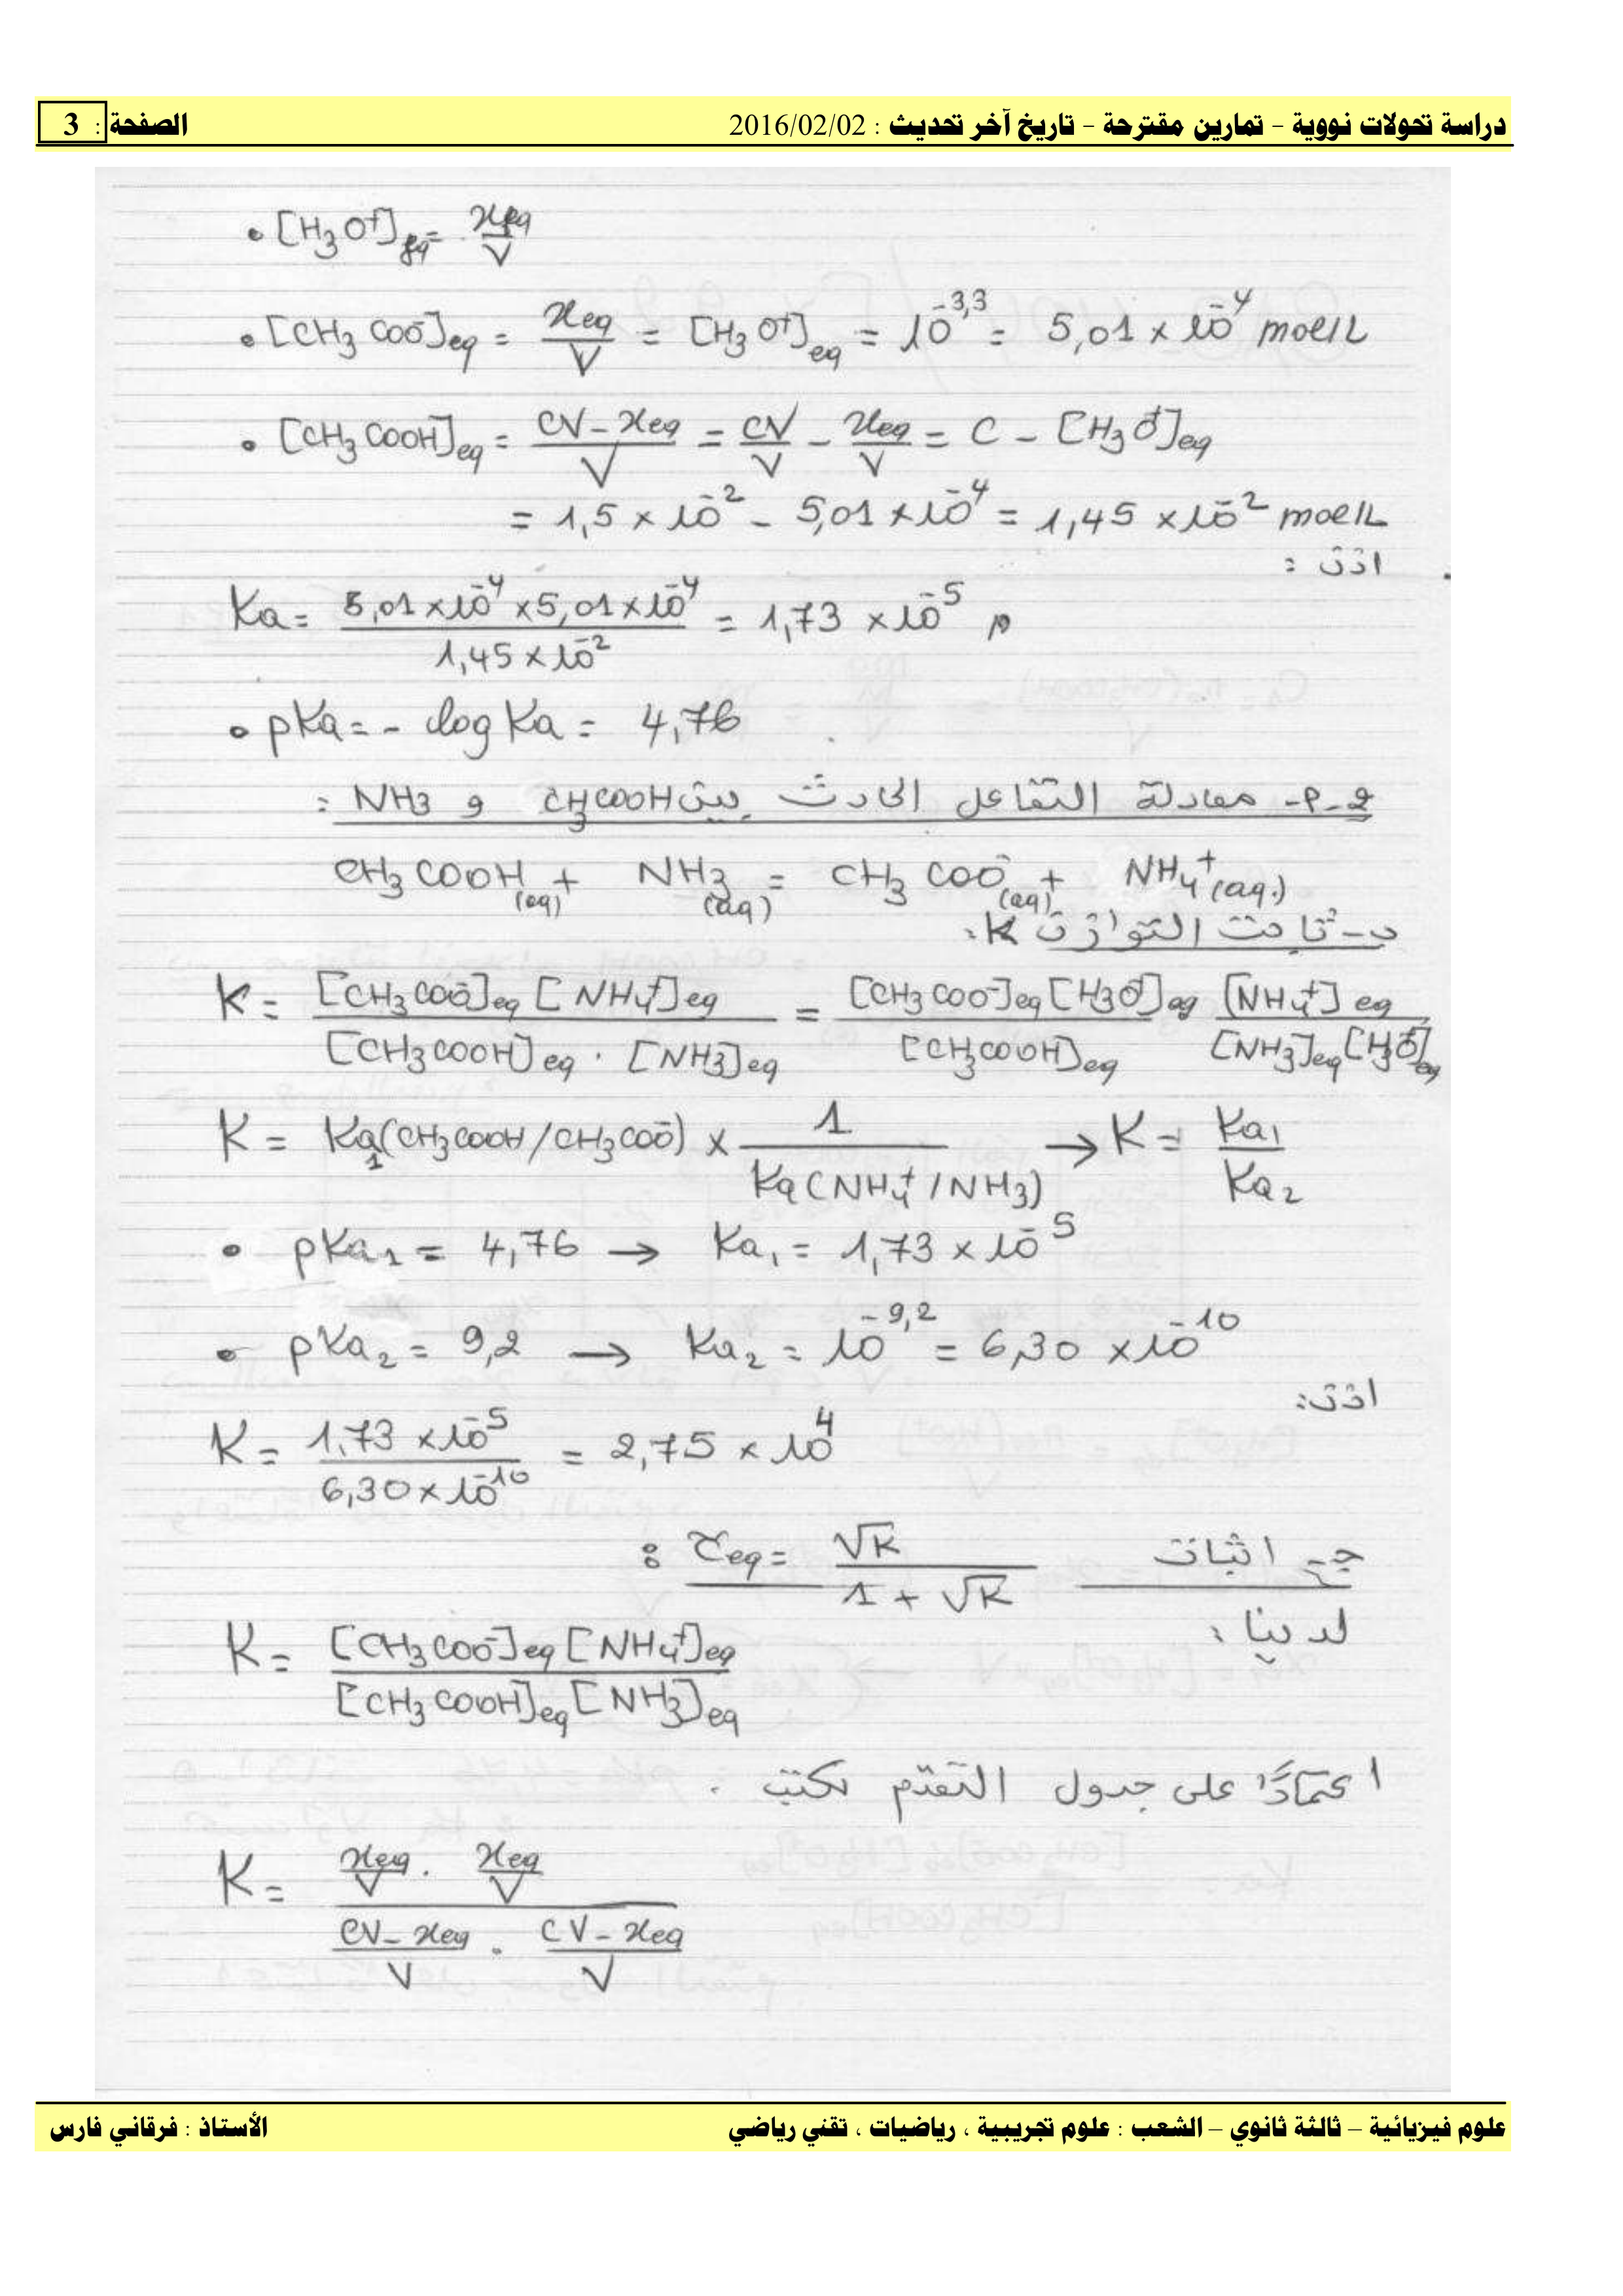 دراسة تحولات نووية – تمارين مقترحة – تاريخ آخر تحديث : 2016/02/02 الصفحة : 3
• [H₃O⁺]eq = xeq/V
• [CH₃COO⁻]eq = xeq/V = [H₃O⁺]eq = 10^-3,3 = 5,01 × 10^-4 mol/L
• [CH₃COOH]eq = (CV - xeq)/V = CV/V - xeq/V = C - [H₃O⁺]eq
= 1,5 × 10^-2 - 5,01 × 10^-4 = 1,45 × 10^-2 mol/L
اذن :
Ka = (5,01 × 10^-4 × 5,01 × 10^-4)/(1,45 × 10^-2) = 1,73 × 10^-5
• pKa = - log Ka = 4,76
2-أ- معادلة التفاعل الحادث بين CH₃COOH و NH₃ :
CH₃COOH(aq) + NH₃(aq) = CH₃COO⁻(aq) + NH₄⁺(aq)
ب- ثابت التوازن K :
K = [CH₃COO⁻]eq [NH₄⁺]eq / [CH₃COOH]eq . [NH₃]eq = [CH₃COO⁻]eq [H₃O⁺]eq / [CH₃COOH]eq [NH₄⁺]eq / [NH₃]eq [H₃O⁺]eq
K = Ka₁(CH₃COOH/CH₃COO⁻) × 1/Ka(NH₄⁺/NH₃) → K = Ka₁/Ka₂
• pKa₁ = 4,76 → Ka₁ = 1,73 × 10^-5
• pKa₂ = 9,2 → Ka₂ = 10^-9,2 = 6,30 × 10^-10
اذن :
K = (1,73 × 10^-5)/(6,30 × 10^-10) = 2,75 × 10^4
ج- اثبات τeq = √K/(1 + √K) :
لدينا :
K = [CH₃COO⁻]eq [NH₄⁺]eq / [CH₃COOH]eq [NH₃]eq
اعتمادًا على جدول التقدم نكتب .
K = (xeq/V . xeq/V) / ((CV - xeq)/V . (CV - xeq)/V)
علوم فيزيائية – ثالثة ثانوي – الشعب : علوم تجريبية ، رياضيات ، تقني رياضي الأستاذ : فرقاني فارس